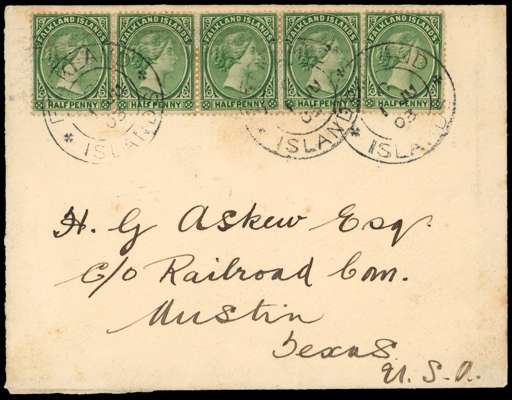 FALKLAND ISLANDS FALKLAND ISLANDS FALKLAND ISLANDS FALKLAND ISLANDS FALKLAND ISLANDS
HALF PENNY HALF PENNY HALF PENNY HALF PENNY HALF PENNY
ISLANDS
ISLANDS
ISLAND
03
03
H. G Askew Esq.
C/o Railroad Com.
Austin
Texas
U. S. A.